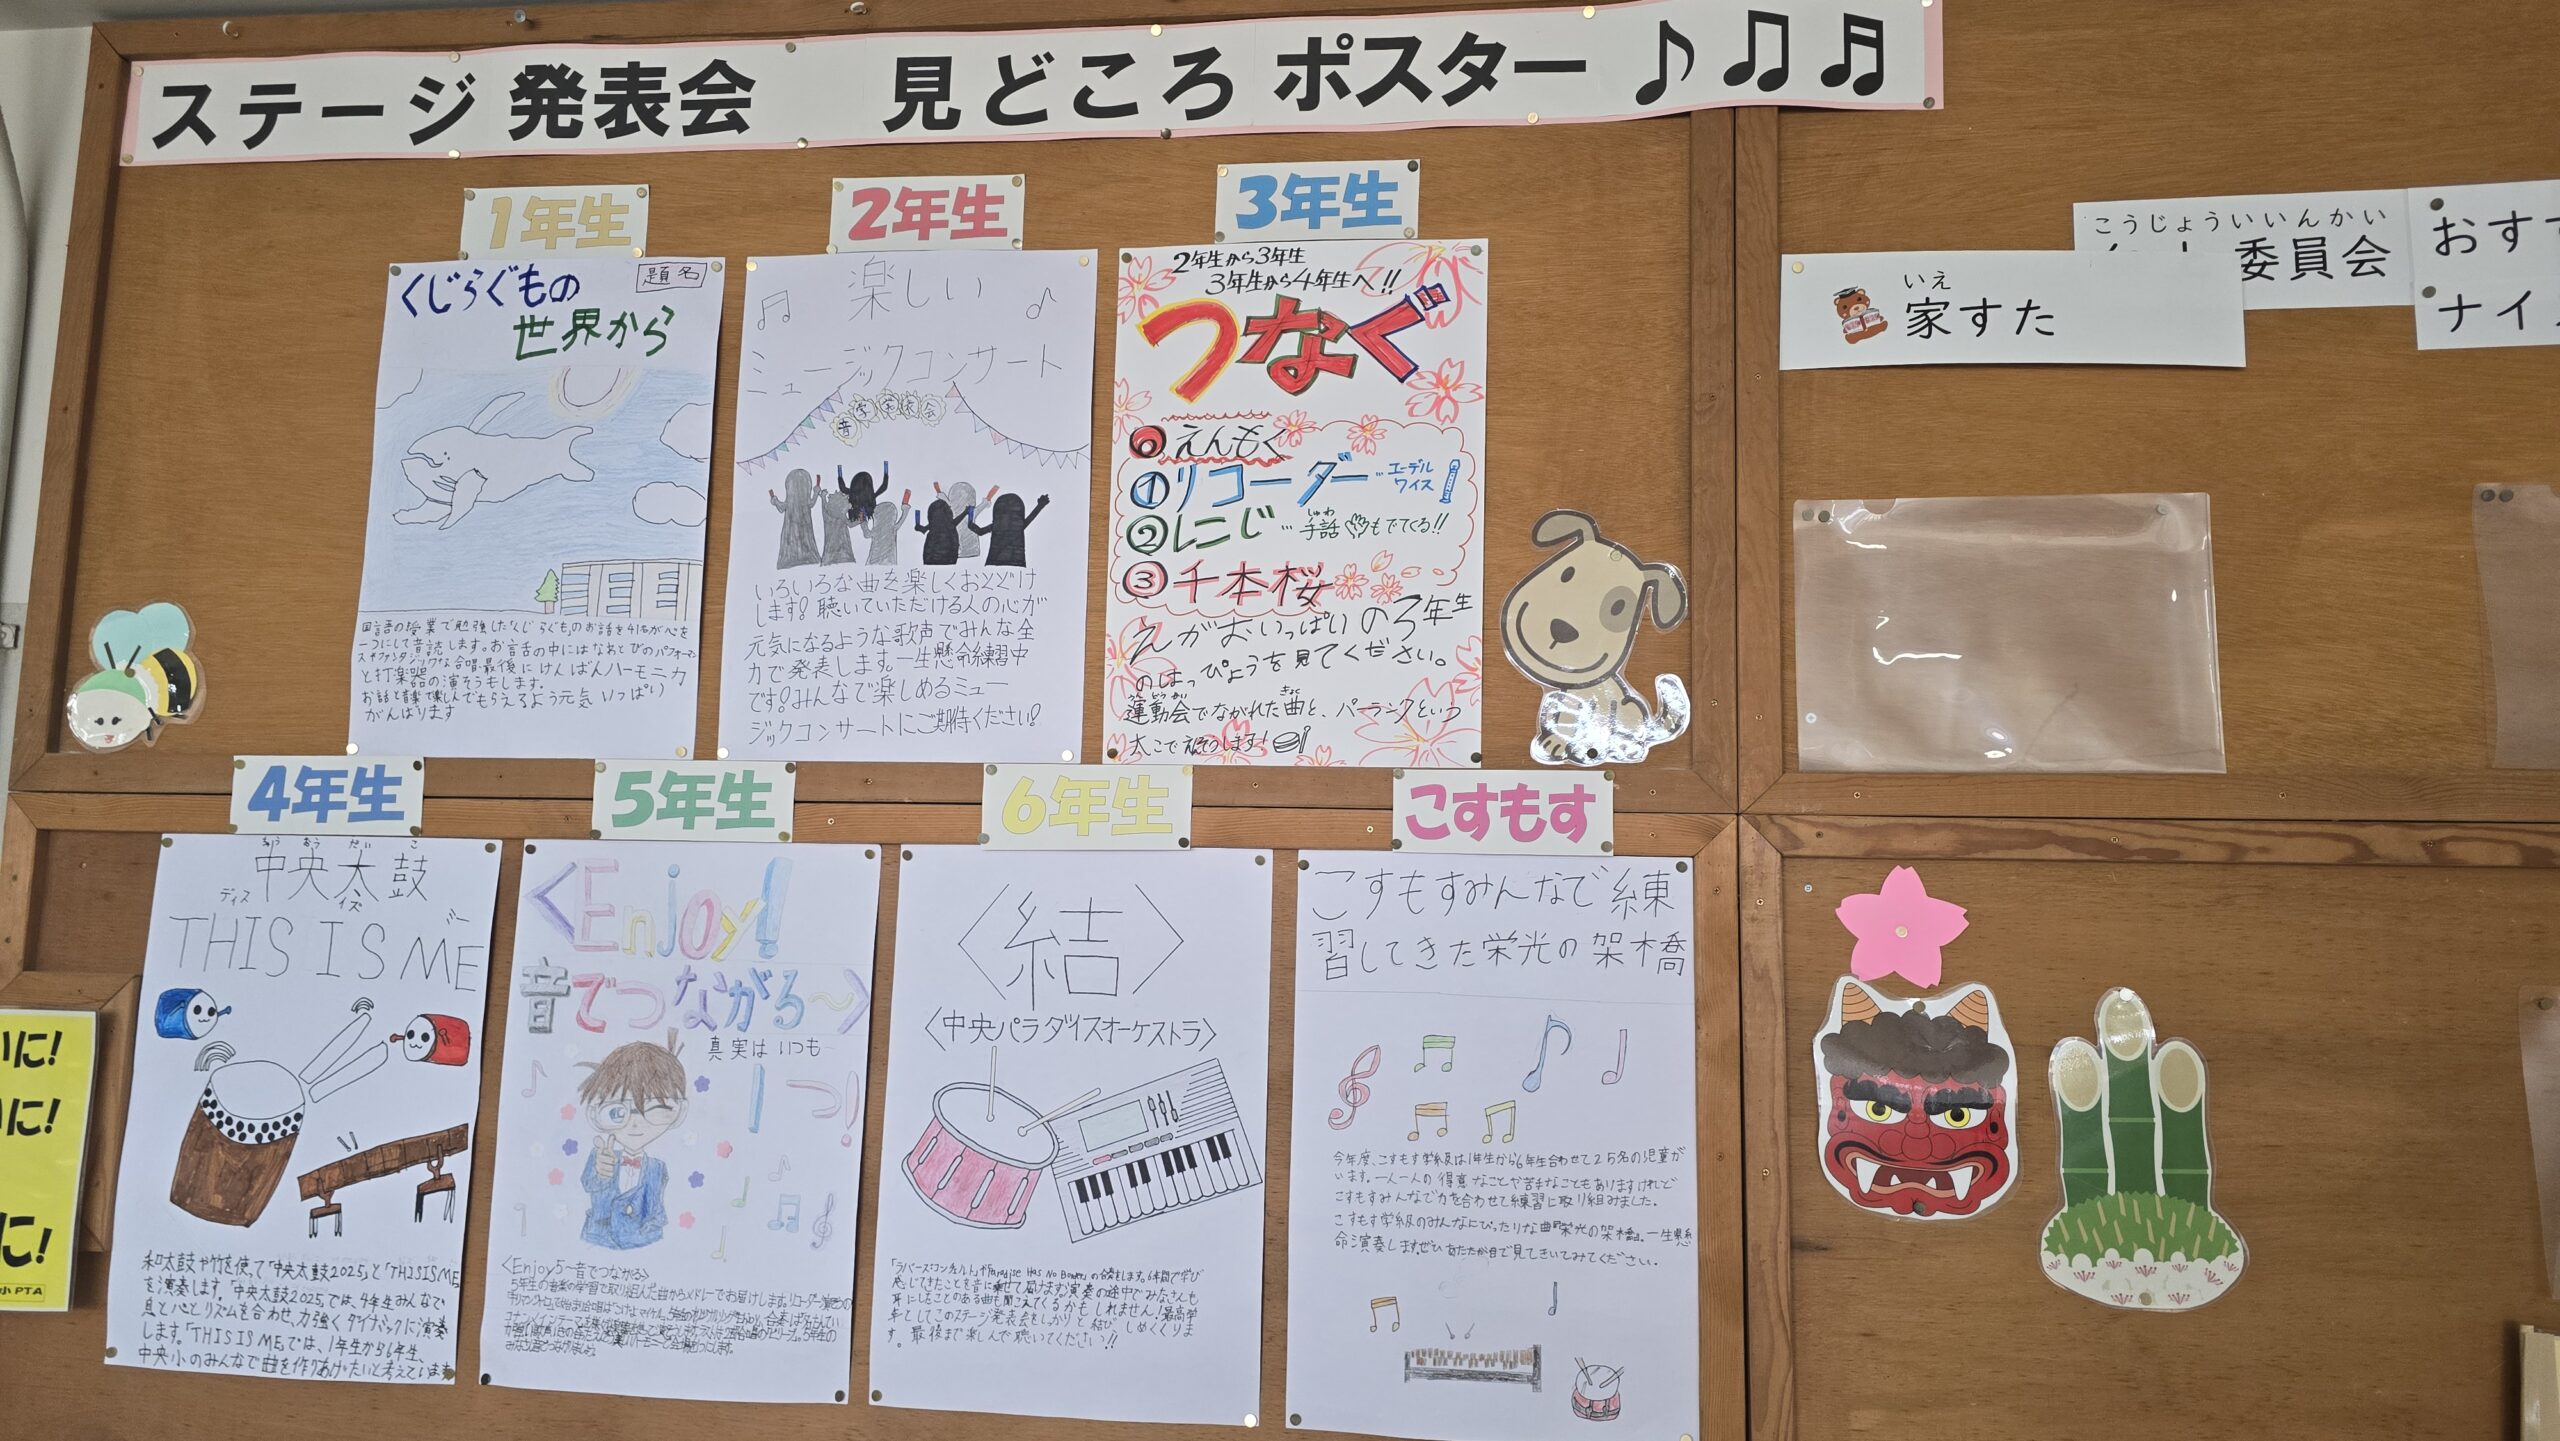 ステージ発表会 見どころポスター♪♫♬
1年生
題名
くじらぐもの
世界から
国語の授業で勉強した「くじらぐも」のお話を41名が心を
一つにして音読します。お話の中にはなわとびのパフォーマン
スやファンタジックな合唱、最後にけんばんハーモニカ
と打楽器の演そうもします。
お話と音楽で楽しんでもらえるよう元気いっぱい
がんばります
2年生
楽しい
ミュージックコンサート
音学発表会
いろいろな曲を楽しくおとどけ
します!聴いていただける人の心が
元気になるような歌声でみんな全
力で発表します。一生懸命練習中
です!みんなで楽しめるミュー
ジックコンサートにご期待ください!
3年生
2年生から3年生
3年生から4年生へ!!
つなぐ
えんもく
①リコーダー…エーデル
ワイス
②にじ…手話もでてくる!!
しゅわ
③千本桜
えがおいっぱいの3年生
のはっぴょうを見てください。
うんどうかい きょく
運動会でながれた曲と、パーランクという
太こでえんそうします!
4年生
ちゅうおうだいこ
中央太鼓
ディス イズ ミー
THIS IS ME
和太鼓や竹を使って「中央太鼓2025」と「THIS IS ME」
を演奏します。「中央太鼓2025」では、4年生みんなで
息と心とリズムを合わせ、力強くダイナミックに演奏
します。「THIS IS ME」では、1年生から6年生、
中央小のみんなで曲を作りあげたいと考えています
5年生
<Enjoy!
音でつながる～>
真実はいつも～
1つ!
<Enjoy5～音でつながる>
5年生の音楽の学習で取り組んだ曲からメドレーでお届けします。リコーダー演奏の
6年生
〈結〉
〈中央パラダイスオーケストラ〉
「ラバーズ・コンチェルト」や「Paradise Has No Border」の合奏をします。6年間で学び
感じてきたことを音に乗せて届けます!演奏の途中でみなさんも
耳にしたことのある曲も聞こえてくるかもしれません!最高学
年としてこのステージ発表会をしっかりと結び、しめくくりま
す。最後まで楽しんで聴いてください!!
こすもす
こすもすみんなで練
習してきた栄光の架木橋
今年度、こすもす学級は1年生から6年生合わせて25名の児童が
います。一人一人の得意なことや苦手なこともありますけれど
こすもすみんなで力を合わせて練習に取り組みました。
こすもす学級のみんなにぴったりな曲『栄光の架橋』。一生懸
命演奏します。ぜひあたたか目で見てきいてみてください。
こうじょういいんかい
委員会
いえ
家すた
おすす
ナイ
いに!
いに!
に!
小PTA